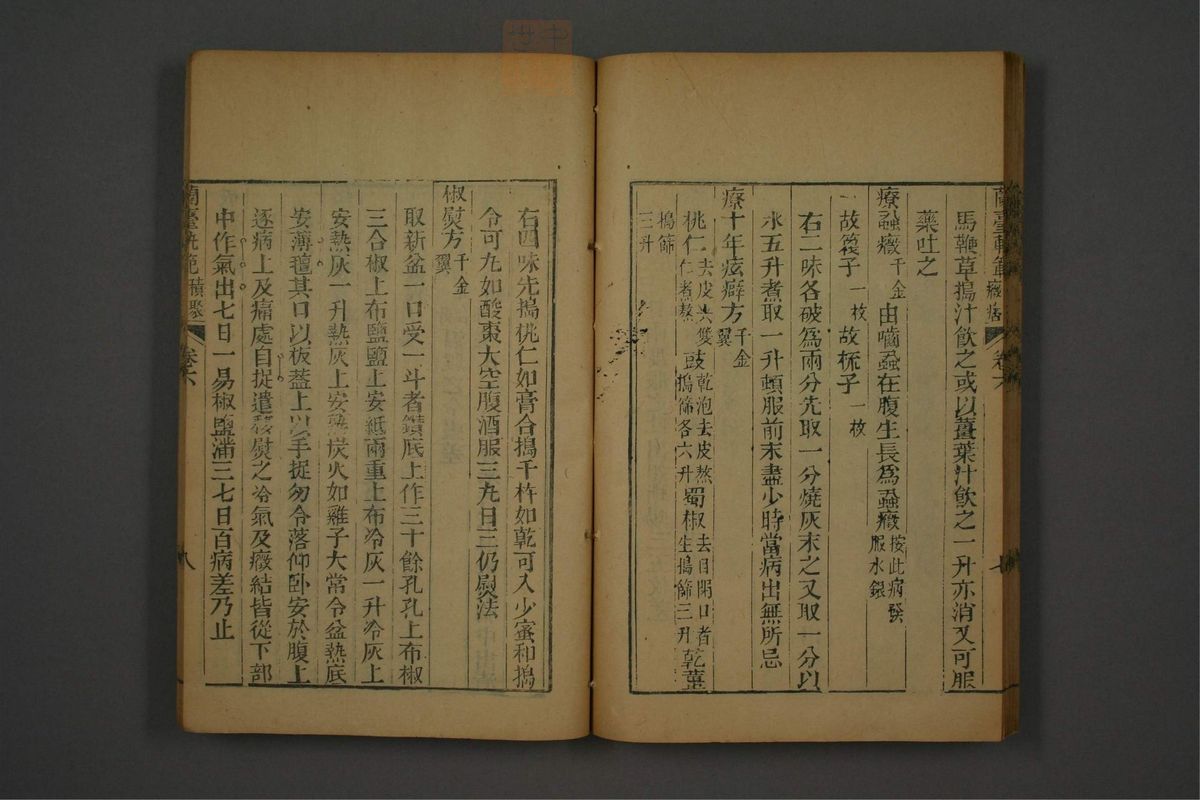 蘭臺軌範 癥癖 卷六 七
馬鞭草搗汁飲之或以薑葉汁飲之一升亦消又可服
藥吐之
療蝨癥千金由嚙蝨在腹生長為蝨癥按此病服水銀
故篦子一枚故梳子一枚
右二味各破為兩分先取一分燒灰末之又取一分以
水五升煮取一升頓服前末盡少時當病出無所忌
療十年痃癖方千金翼
桃仁去皮尖雙仁者熬豉乾泡去皮熬搗篩各六升蜀椒去目閉口者生搗篩三升乾薑
搗篩三升
右四味先搗桃仁如膏合搗千杵如乾可入少蜜和搗
令可丸如酸棗大空腹酒服三丸日三仍熨法
椒熨方千金翼
取新盆一口受一斗者鑽底上作三十餘孔孔上布椒
三合椒上布鹽鹽上安紙兩重上布冷灰一升冷灰上
安熱灰一升熱灰上安熟炭火如雞子大常令盆熱底
安薄氊其口以板蓋上以手捉勿令落仰臥安於腹上
逐病上及痛處自捉遣熨之冷氣及癥結皆從下部
中作氣出七日一易椒鹽滿三七日百病差乃止
蘭臺軌範 積聚 卷六 八